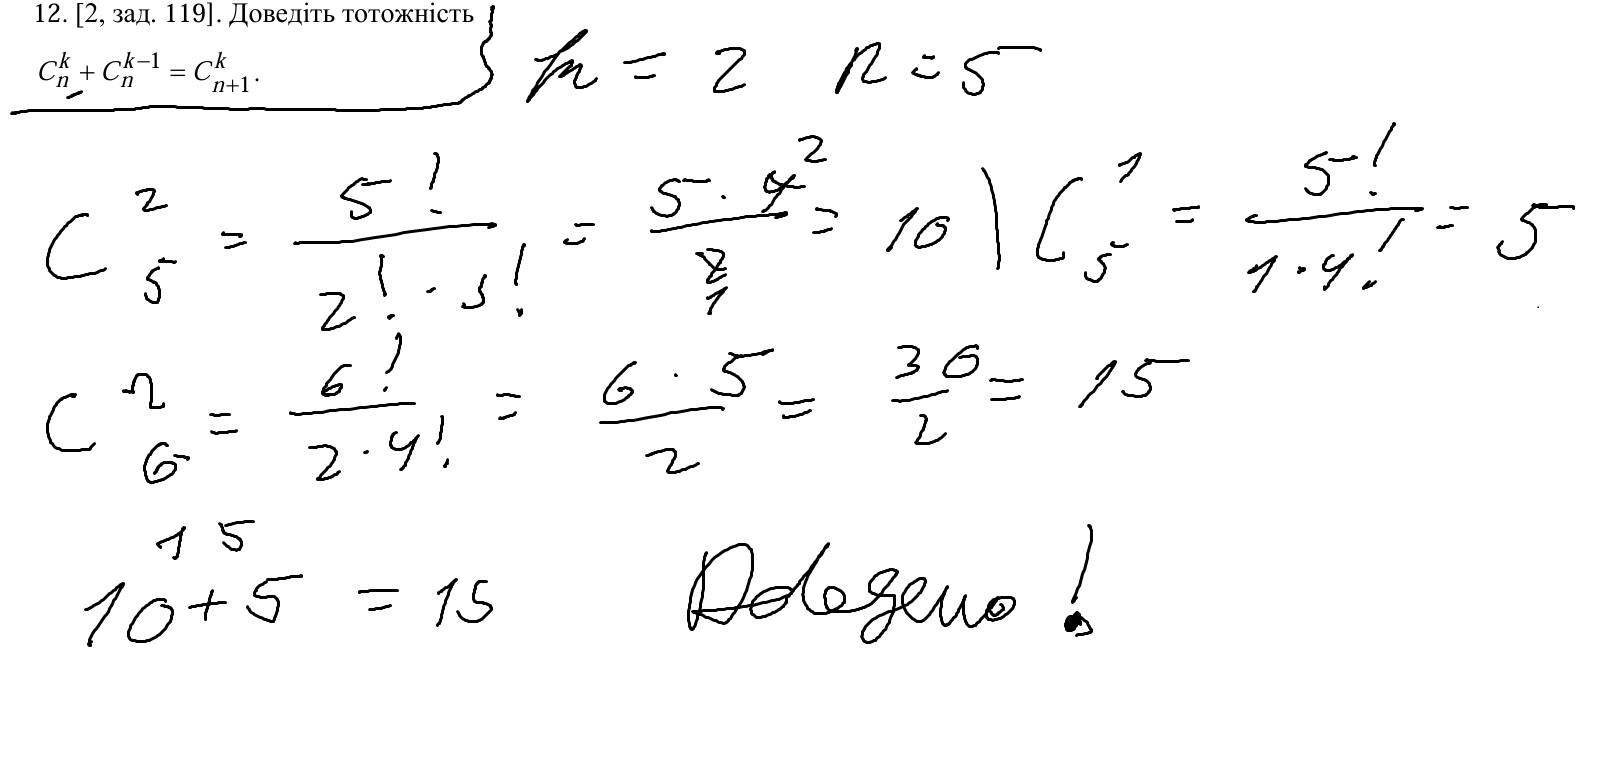 12. [2, зад. 119]. Доведіть тотожність
C_n^k + C_n^{k-1} = C_{n+1}^k.
k = 2 n = 5
C_5^2 = 5! / (2! · 3!) = (5 · 4^2) / (2 1) = 10 | C_5^1 = 5! / (1 · 4!) = 5
C_6^2 = 6! / (2 · 4!) = (6 · 5) / 2 = 30 / 2 = 15
15
10 + 5 = 15 Доведено!